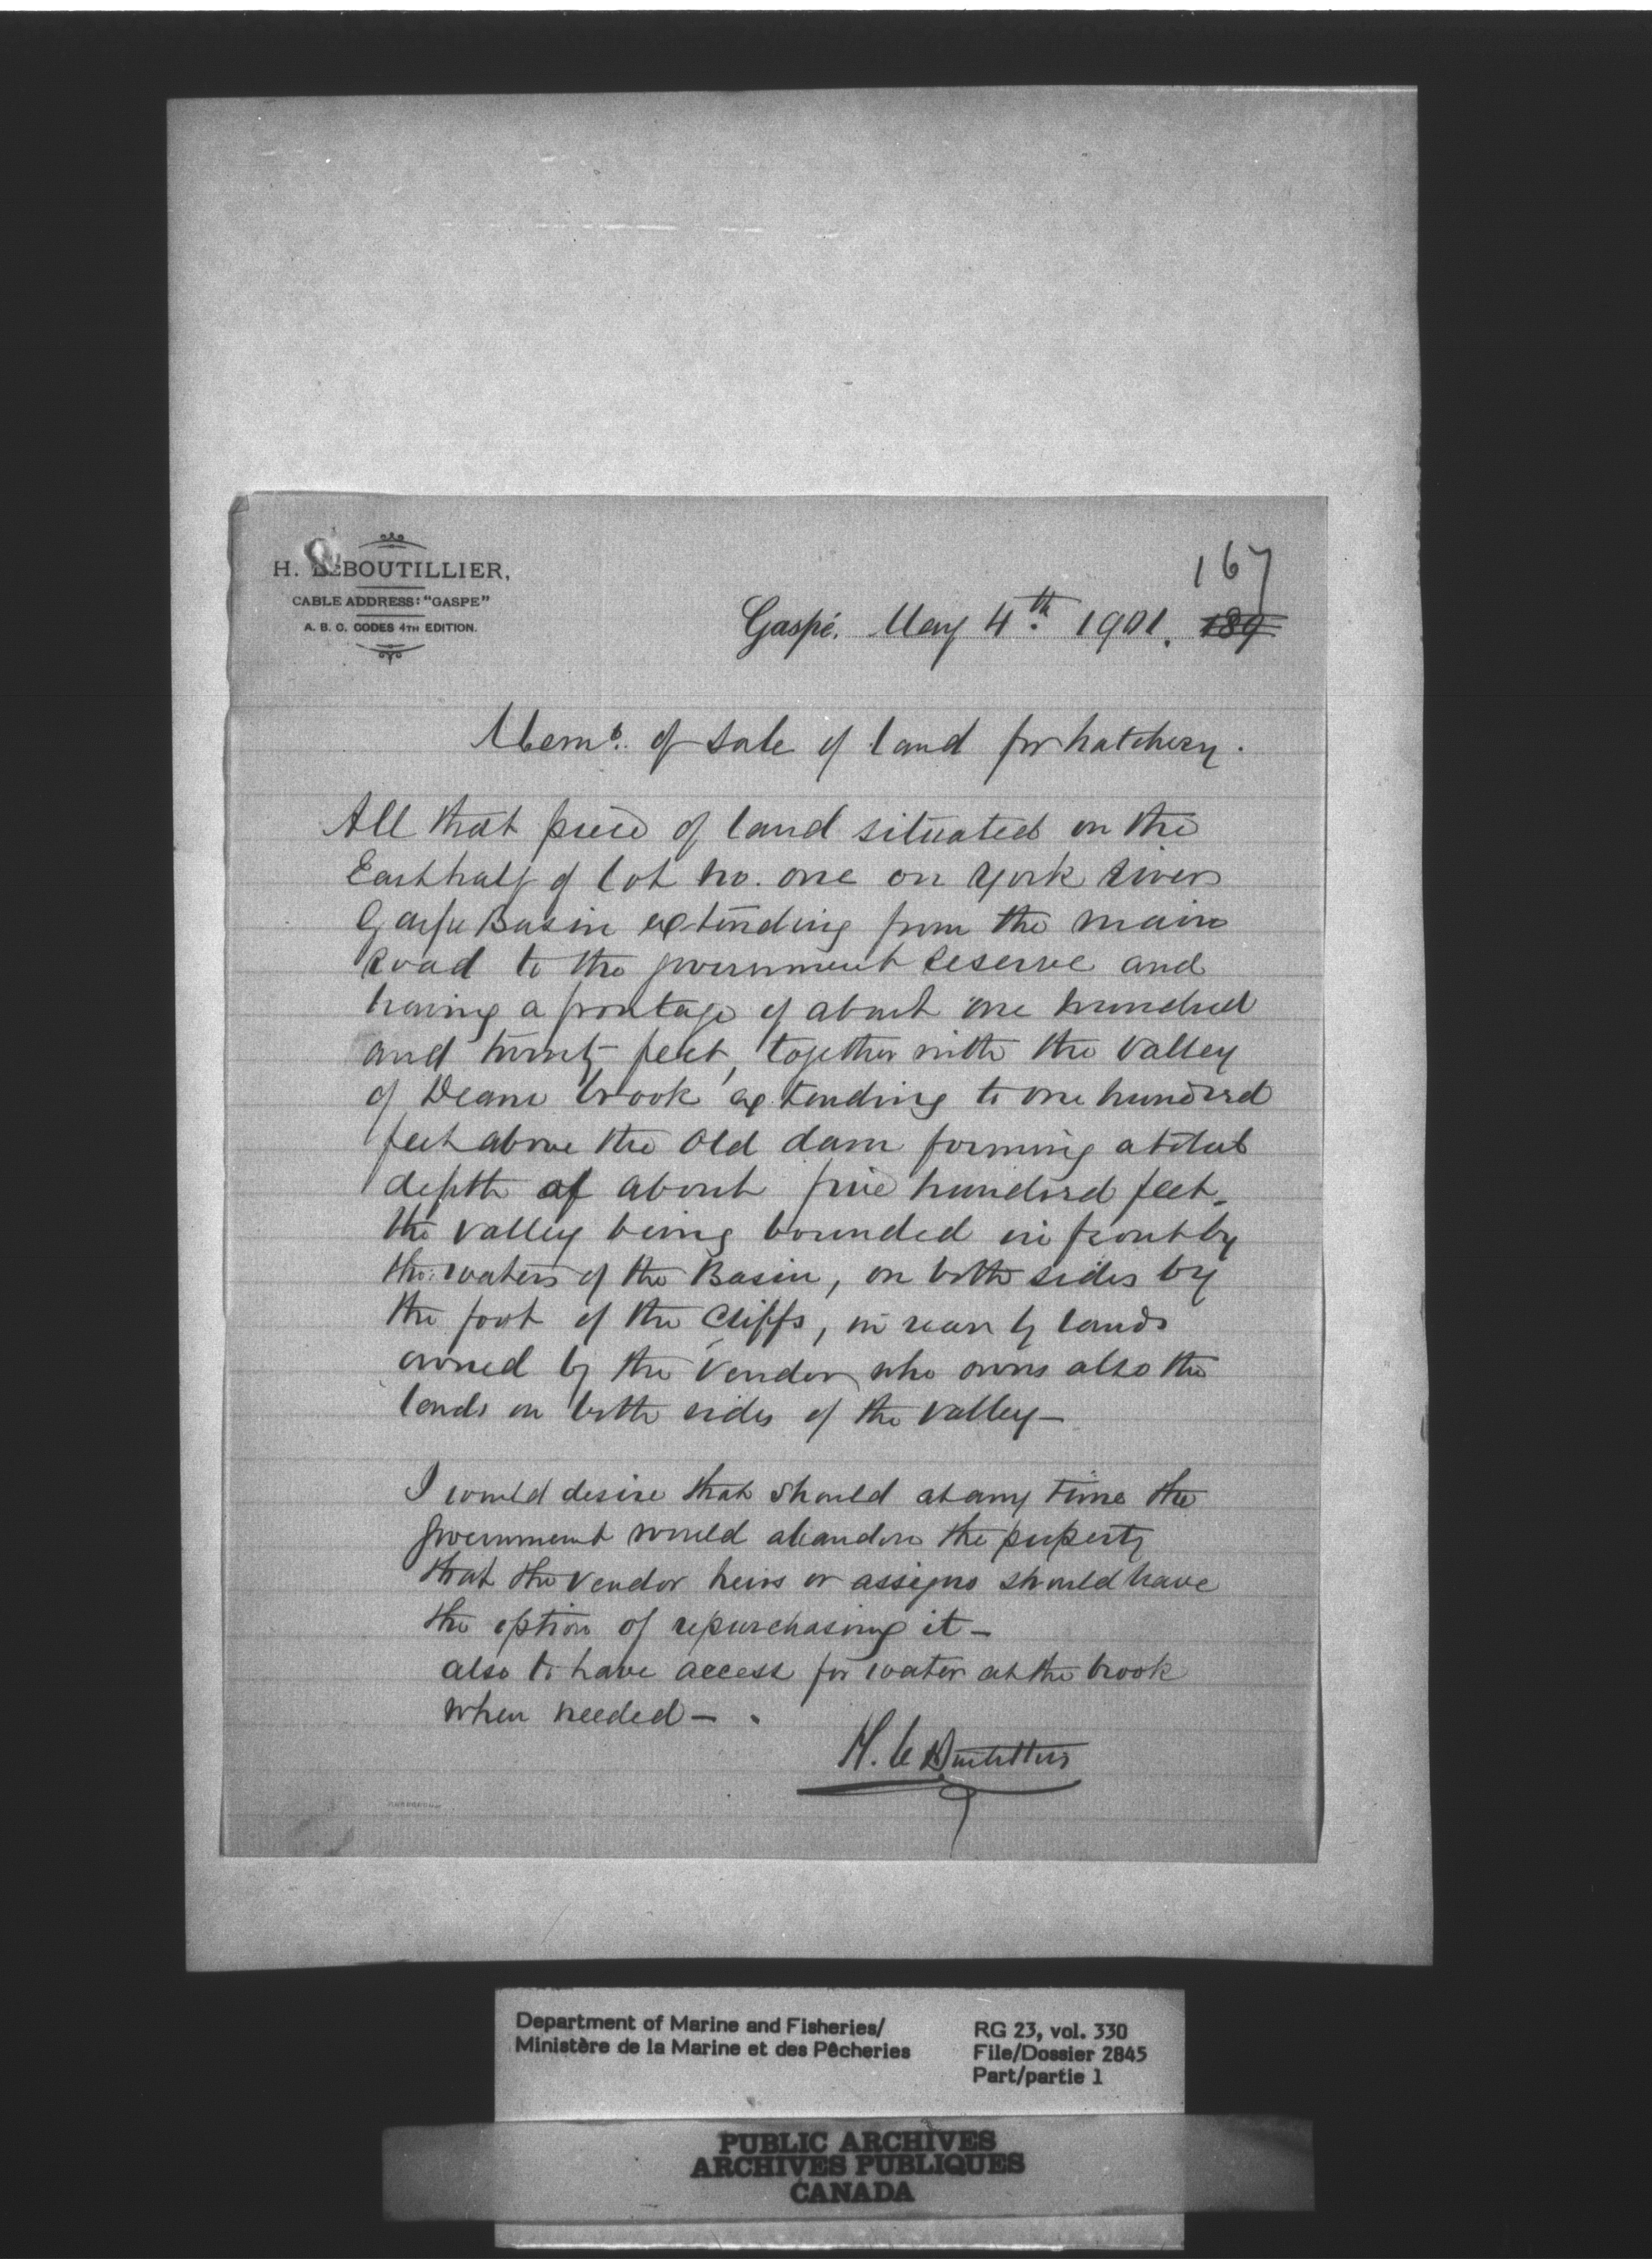 H. LeBOUTILLIER,
CABLE ADDRESS: "GASPE"
A. B. C. CODES 4TH EDITION.
167
Gaspé, May 4th 1901. 189
Memo. of sale of land for hatchery.
All that piece of land situated on the
East half of lot no. one on York River
Gaspe Basin extending from the main
Road to the government Reserve and
having a frontage of about one hundred
and twenty feet, together with the valley
of Deans brook extending to one hundred
feet above the old dam forming a total
depth of about five hundred feet.
the valley being bounded in front by
the waters of the Basin, on both sides by
the foot of the Cliffs, in rear by lands
owned by the Vendor who owns also the
lands on both sides of the valley —
I would desire that should at any time the
government would abandon the property
that the vendor heirs or assigns should have
the option of repurchasing it —
also to have access for water at the brook
when needed — .
H. Le Boutillier
Department of Marine and Fisheries/
Ministère de la Marine et des Pêcheries
RG 23, vol. 330
File/Dossier 2845
Part/partie 1
PUBLIC ARCHIVES
ARCHIVES PUBLIQUES
CANADA